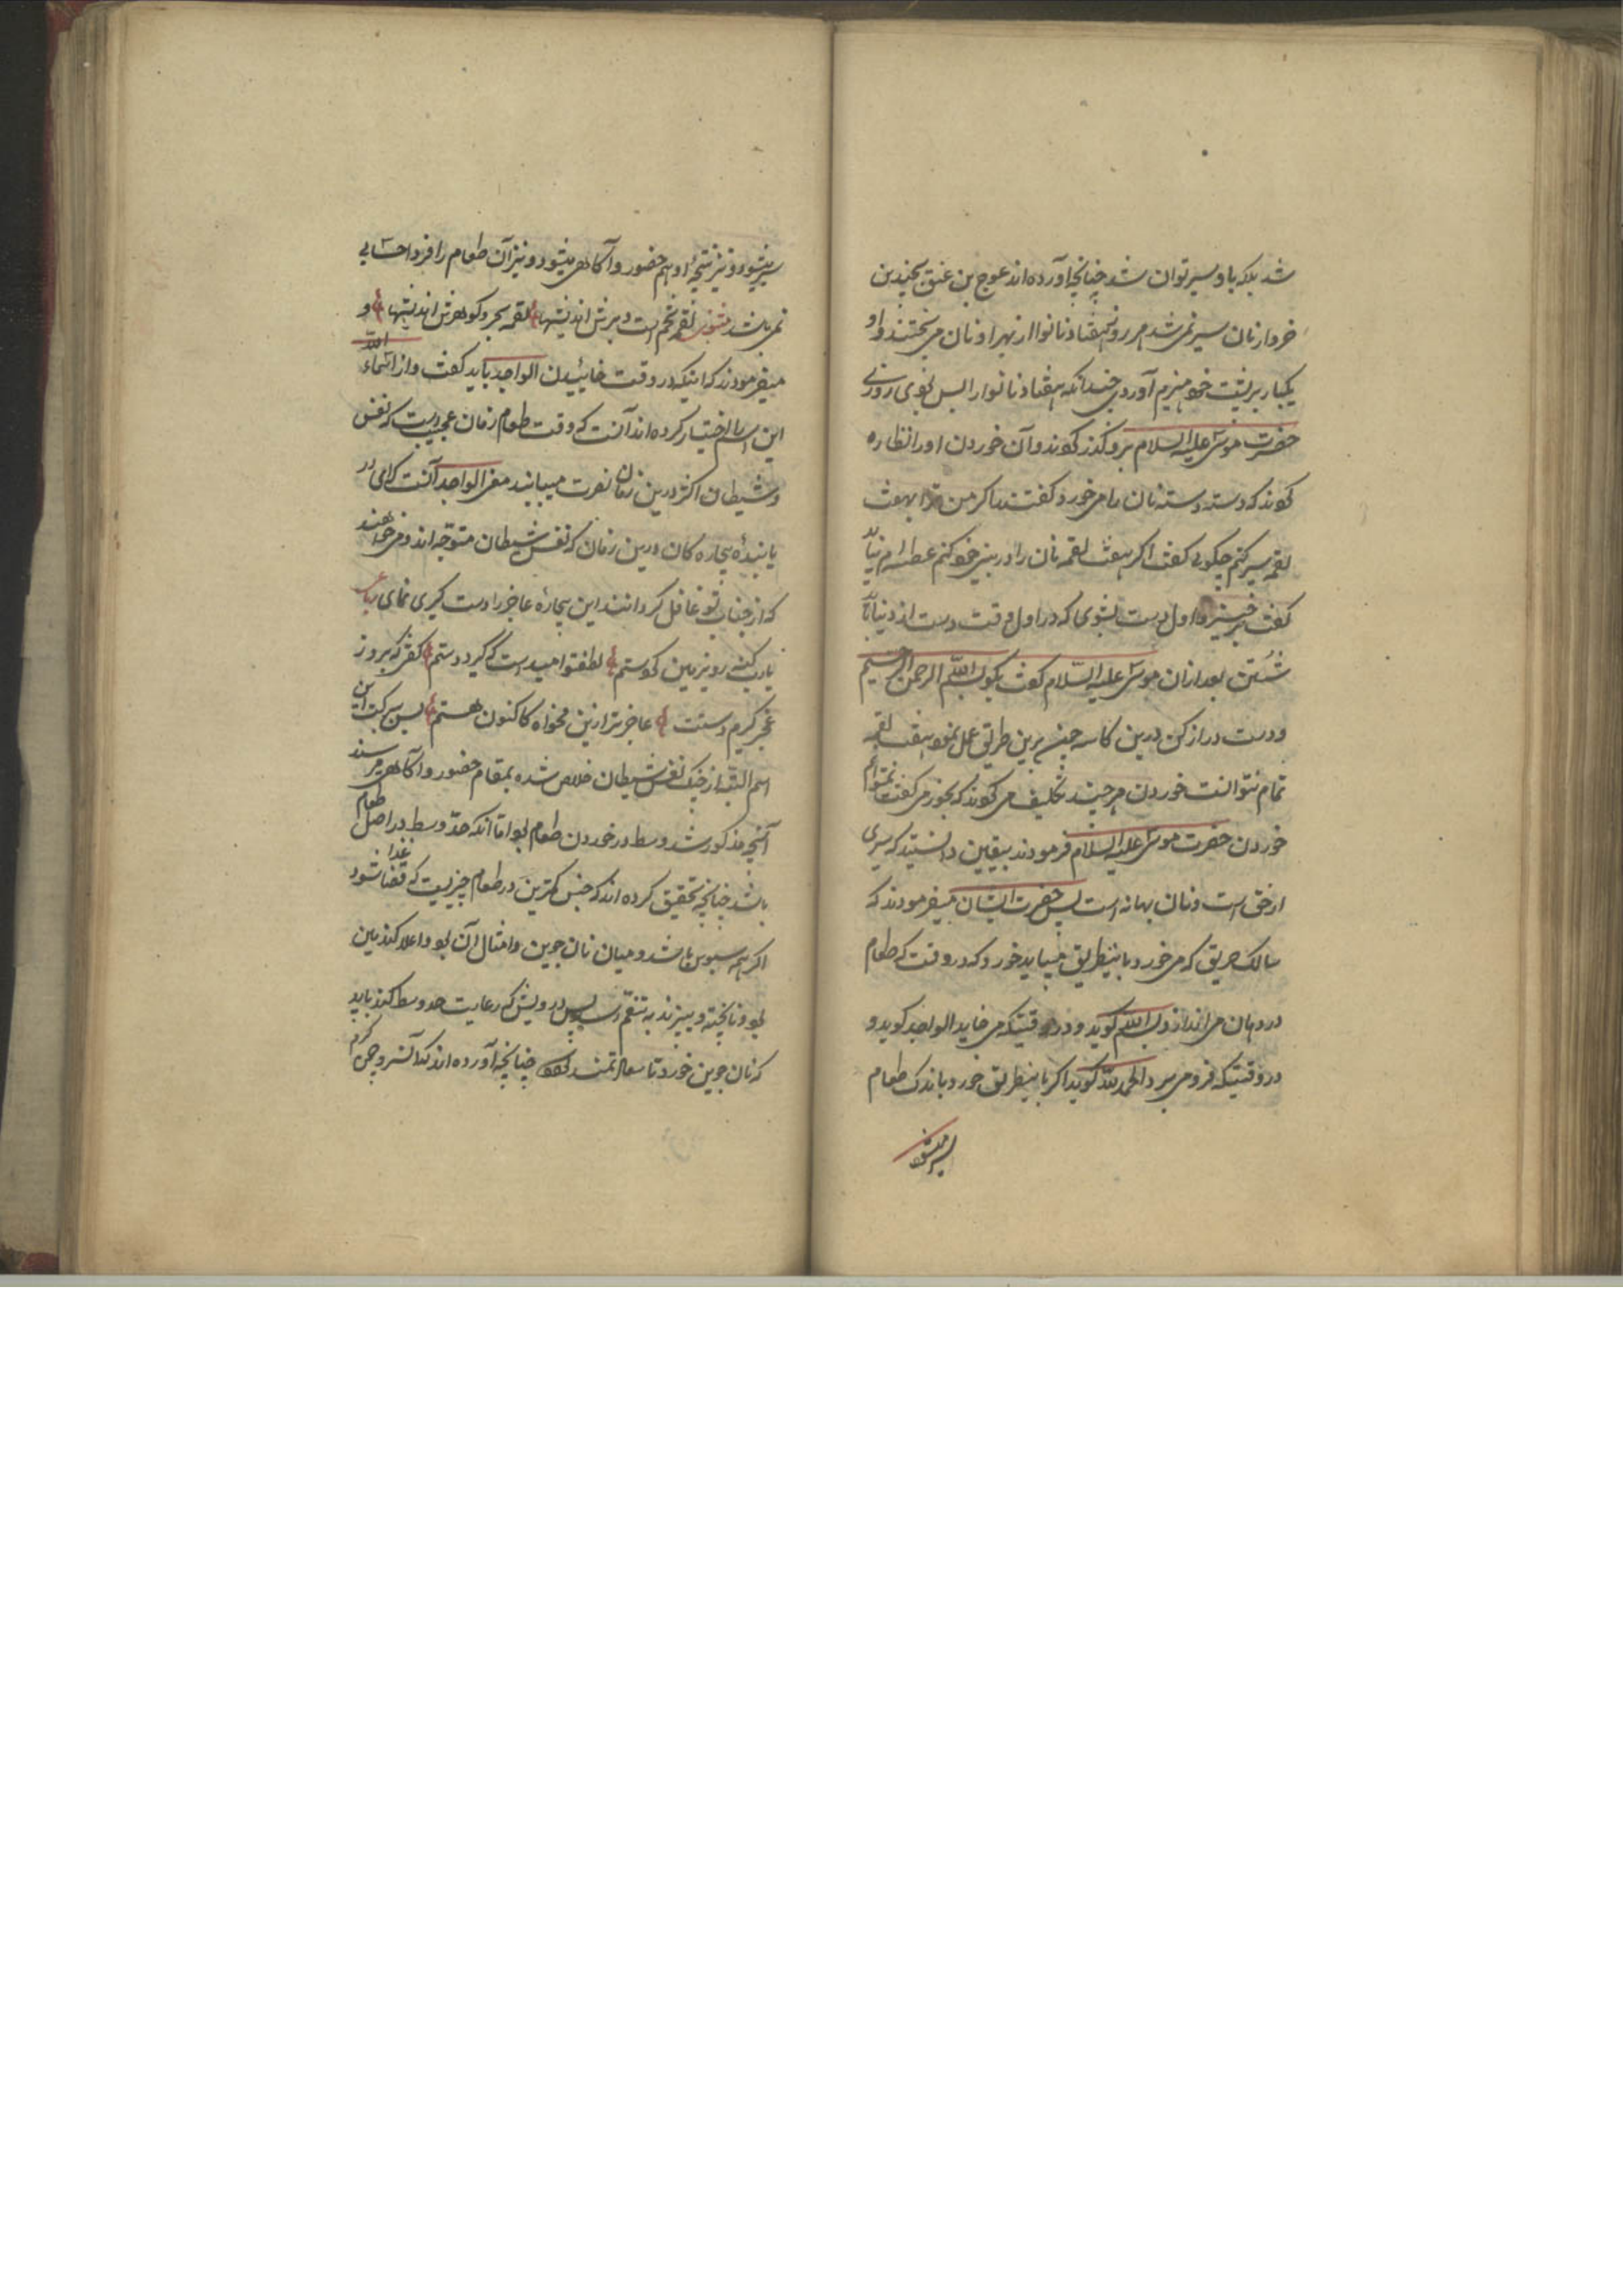 شد بلکه باو سیر توان شد چنانچه آورده اند عوج بن عنق بچندین
خروار نان سیر نمی شد هر روز هفتاد نانوا از بهر او نان می پختند و او
یکبار بر پشت خود هیزم آوردی چندانکه هفتاد نانوا را بس بودی روزی
حضرت موسی علیه السلام برو گذر کردند و آن خوردن او را نظاره
کردند که دسته دسته نان را می خورد گفتند اگر من ترا بهفت
لقمه سیر کنم چگویی گفت اگر هفت لقمه نان را در بینی خود کنم عطسه ام نیاید
گفت برخیز و اول دست بشوی که در اول وقت دست از دنیا باید
شستن بعد از ان موسی علیه السلام گفت بکو بسم الله الرحمن الرحیم
و دست دراز کن درین کاسه چون برین طریق عمل نمود هفت لقمه
تمام نتوانست خوردن هر چند تکلیف می کردند که بخور می گفت نمیتوانم
خوردن حضرت موسی علیه السلام فرمودند بیقین دانستید که سیری
از حق است و نان بهانه است پس حضرت ایشان میفرمودند که
سالک هر یک که می خورد باینطریق میباید خورد که در وقت که طعام
در دهان می اندازد بسم الله گوید و در وقتیکه می خاید الواجد گوید و
در وقتیکه فرو می برد الحمد لله گوید اگر باینطریق خورد باندک طعام
سیر میشود
سیر میشود و نیز نتیجۀ او هم حضور و آگاهی میشود و نیز آن طعام را فردا حسابی
نمی باشد مثنوی لقمه تخم است و برش اندیشها لقمه بحر و گوهرش اندیشها و
میفرمودند که اینکه در وقت خائیدن الواجد باید گفت و از اسماء الله
این اسم اختیار کرده اند آنست که وقت طعام زمان عجیبیست که نفس
و شیطان اکثر درین زمان نصرت مییابند معنی الواجد آنست که ای در
یابندۀ بیچاره کان درین زمان که نفس و شیطان متوجه اند و می خواهند
که از جناب تو غافل گردانند این بیچارۀ عاجز را دست گیری نمای رباعی
یارب که گنه روی زمین کردستم لطفتو امید است که گیرد دستم گفتی که بروز
عجز گیرم دستت عاجز تر ازین مخواه کاکنون هستم پس ببرکت این
اسم البته از جنگ نفس و شیطان خلاص شده بمقام حضور و آگاهی می رسند
آنچه مذکور شد وسط در خوردن طعام بود اما آنکه حد وسط در اصل طعام
باشد چنانچه تحقیق کرده اند که جنس کمترین در طعام چیزیست که قضا شود غذا
اگر همه سبوس باشد و میان نان جوین و امثال آن بود و اعلا گندمین
بود و نا پخته و بیزند به تنعم رسد پس درویش که رعایت حد وسط کند باید
که نان جوین خورد تا سعادتمند شود چنانچه آورده اند که آنسرور جوین گرم